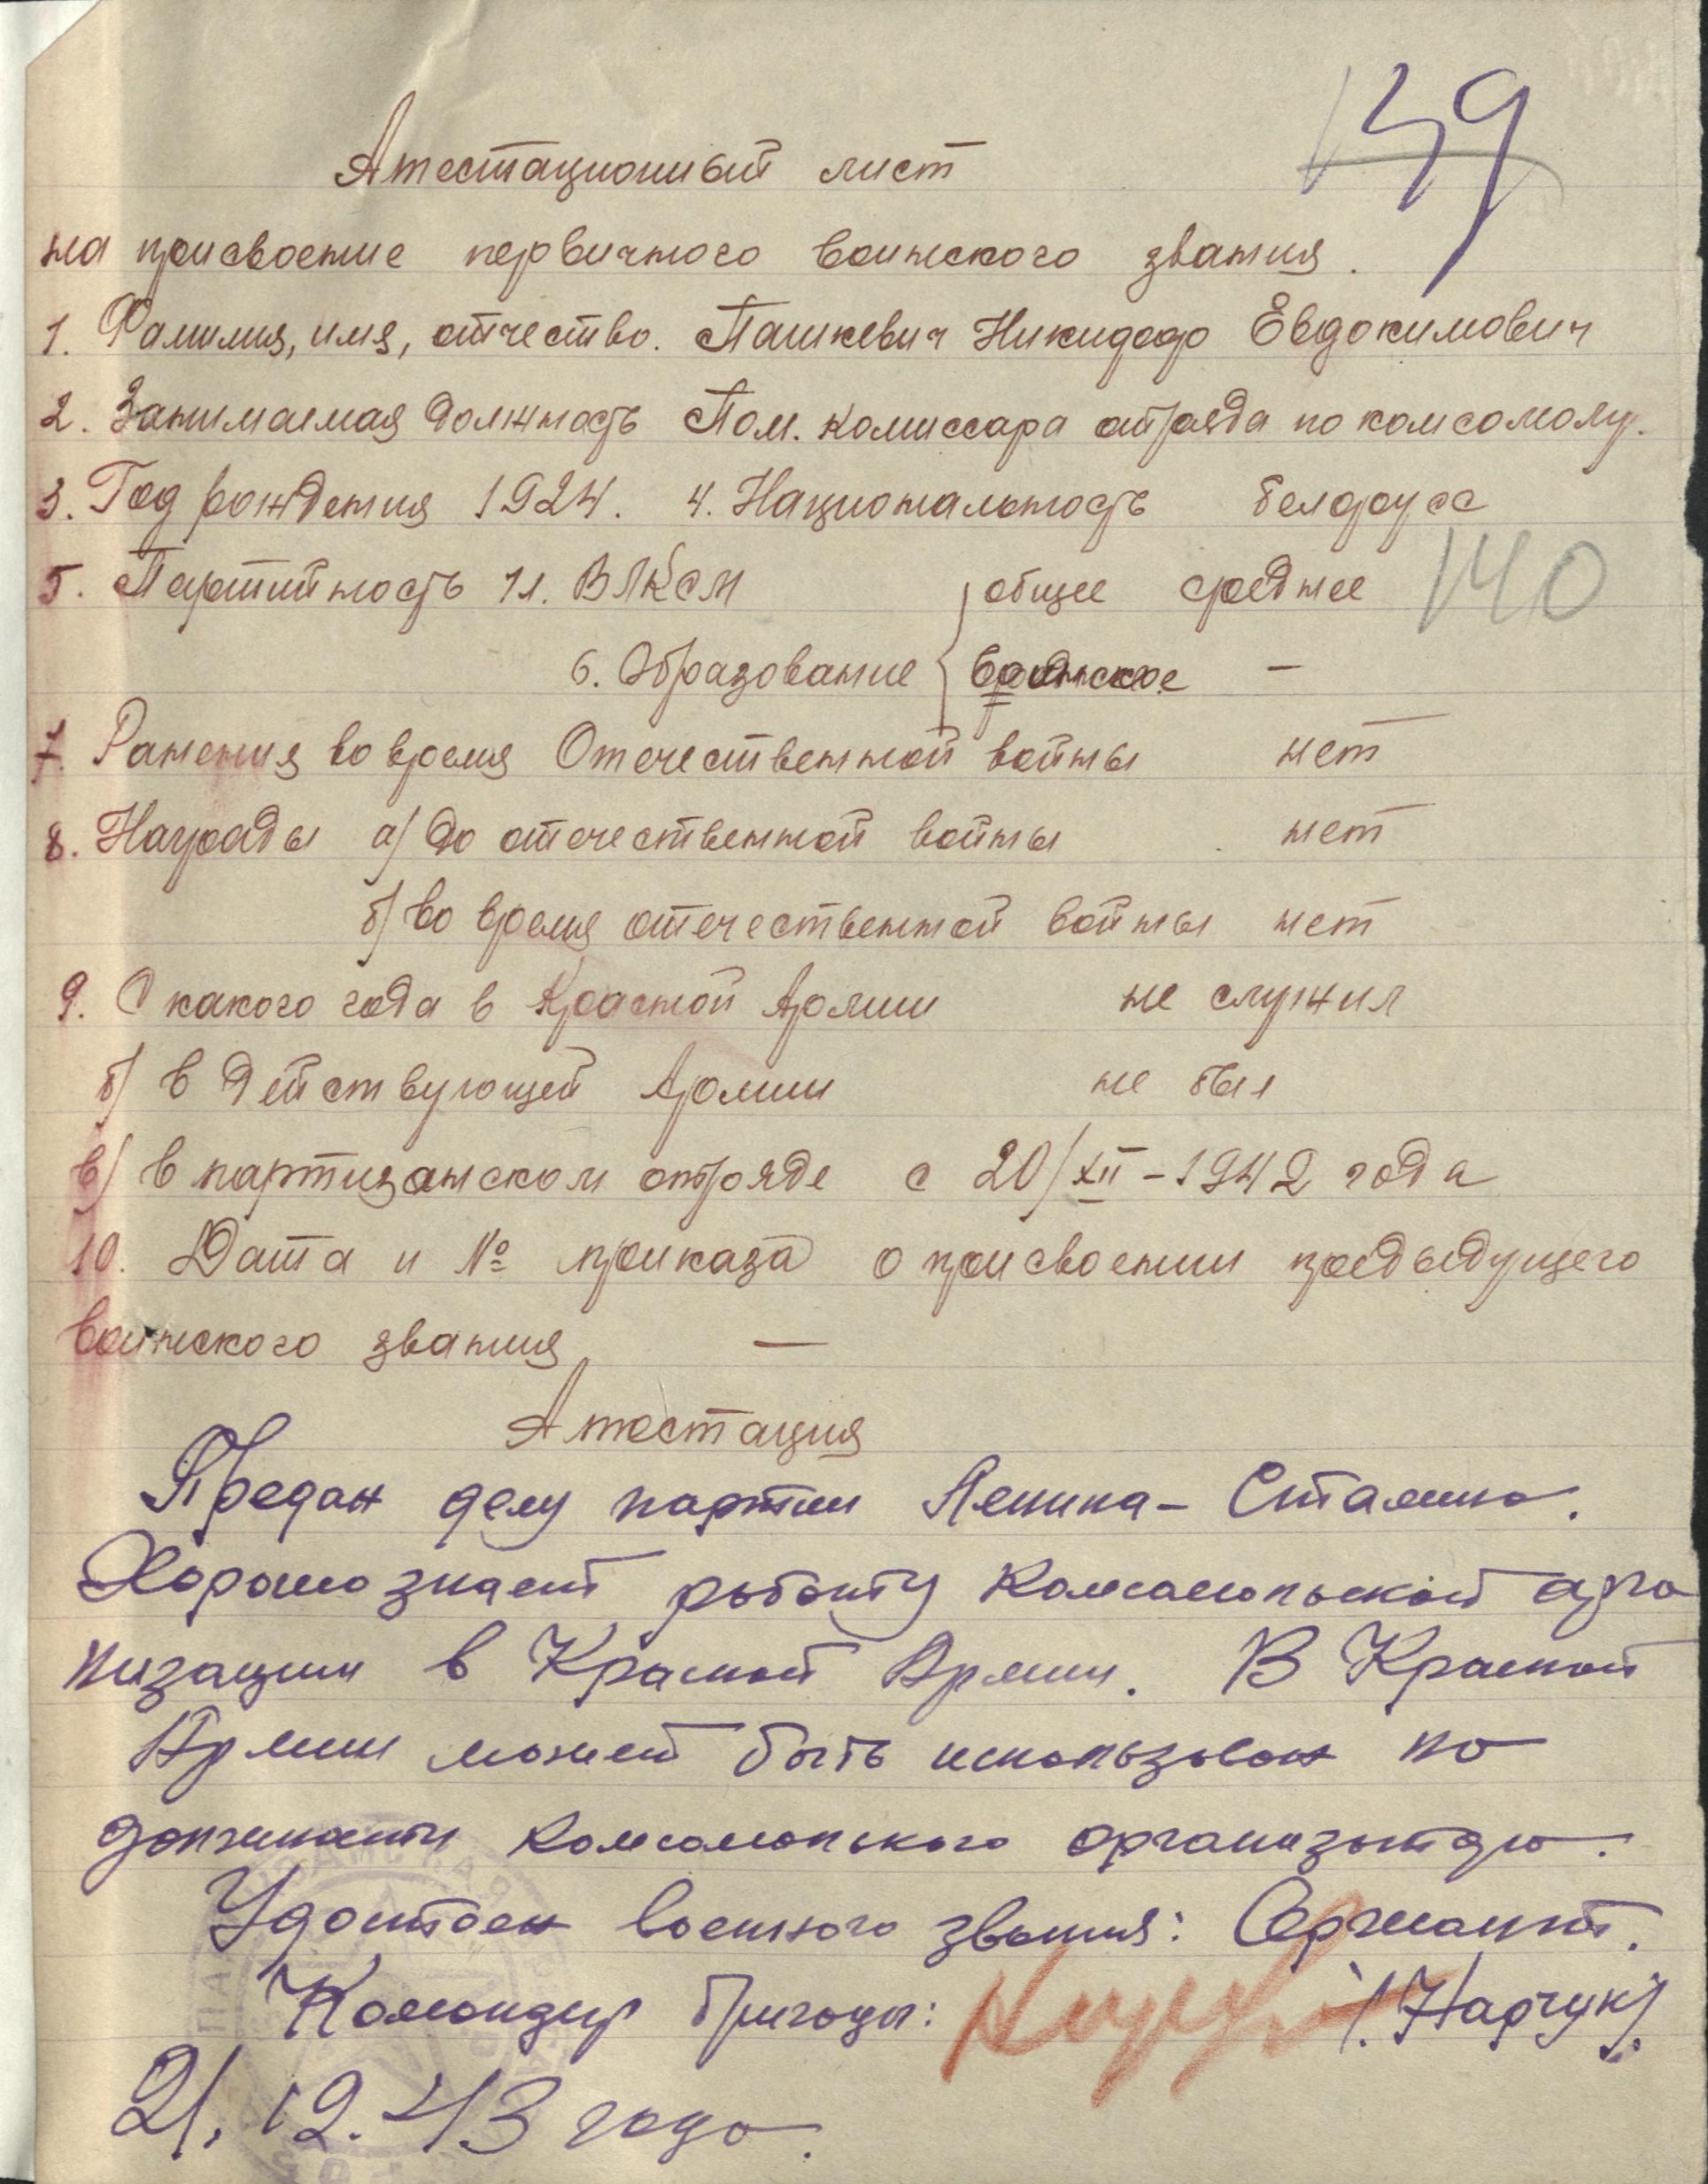 139
Атестационный лист
на присвоение первичного воинского звания.
1. Фамилия, имя, отчество. Пашкевич Никифор Евдокимович
2. Занимаемая должность Пом. комиссара отряда по комсомолу.
3. Год рождения 1924. 4. Национальность белорусс
5. Партийность чл. ВЛКСМ { общее среднее
140
6. Образование { воинское —
7. Ранения во время Отечественной войны нет
8. Награды а) до отечественной войны нет
б) во время отечественной войны нет
9. С какого года в Красной Армии не служил
б) в действующей Армии не был
в) в партизанском отряде с 20/XII-1942 года
10. Дата и № приказа о присвоении предыдущего
воинского звания —
Атестация
Предан делу партии Ленина - Сталина.
Хорошо знает работу комсомольской орга
низации в Красной Армии. В Красной
Армии может быть использован по
должности комсомольского организатора.
Удостоен военного звания: Сержант.
Командир бригады: /Нарчук/
21.12.43 года.